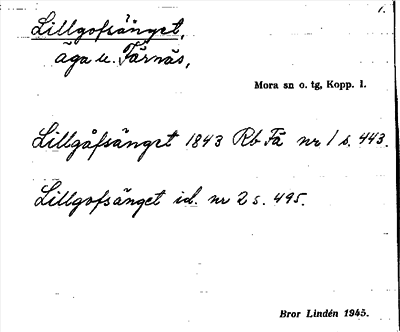 Lillgofsänget,
1.
äga u. Färnäs,
Mora sn o. tg, Kopp. l.
Lillgåfsänget 1843 Rb Fä nr 1 s. 443.
Lillgofsänget id. nr 2 s. 495.
Bror Lindén 1945.